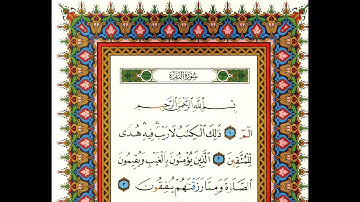 سُورَةُ البَقَرَةِ
بِسْمِ ٱللَّهِ ٱلرَّحْمَٰنِ ٱلرَّحِيمِ
الٓمٓ ١ ذَٰلِكَ ٱلْكِتَٰبُ لَا رَيْبَ فِيهِ هُدًى
لِّلْمُتَّقِينَ ٢ ٱلَّذِينَ يُؤْمِنُونَ بِٱلْغَيْبِ وَيُقِيمُونَ
ٱلصَّلَوٰةَ وَمِمَّا رَزَقْنَٰهُمْ يُنفِقُونَ ٣